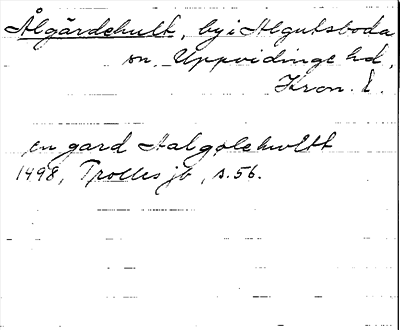 Ålgärdehult, by i Algutsboda
sn. Uppvidinge hd,
Kron. l.
en gard Aalgolehultt
1498, Trolles jb, s. 56.